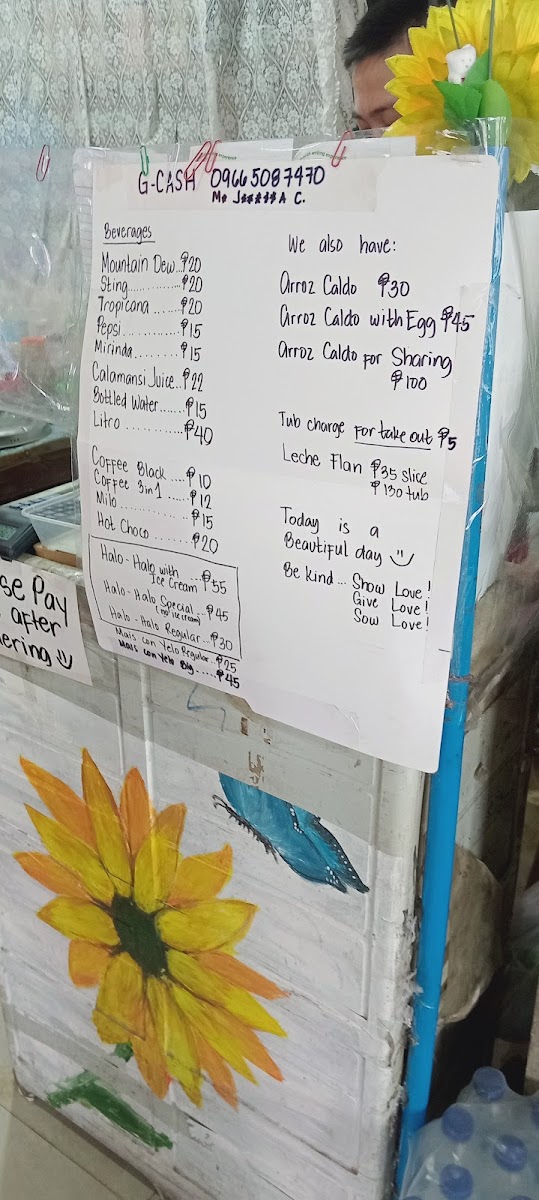 G-CASH 09665087470
Beverages
Mountain Dew...₱20
Sting.............₱20
Tropicana.......₱20
Pepsi.............₱15
Mirinda.........₱15
Calamansi Juice..₱22
Bottled Water......₱15
Litro............₱40
Coffee Black....₱10
Coffee 3in1......₱12
Milo.............₱15
Hot Choco.......₱20
Halo-Halo with
Ice Cream...₱55
Halo-Halo Special...₱45
(no ice cream)
Halo-Halo Regular...₱30
Mais con Yelo Regular...₱25
Mais con Yelo Big.....₱45
We also have:
Arroz Caldo ₱30
Arroz Caldo with Egg ₱45
Arroz Caldo for Sharing
₱100
Tub charge for take out ₱5
Leche Flan ₱35 slice
₱130 tub
Today is a
Beautiful day
Be kind... Show Love!
Give Love!
Sow Love!
se Pay
after
ering